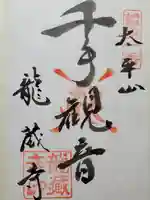 太平山
千手観音
龍蔵寺